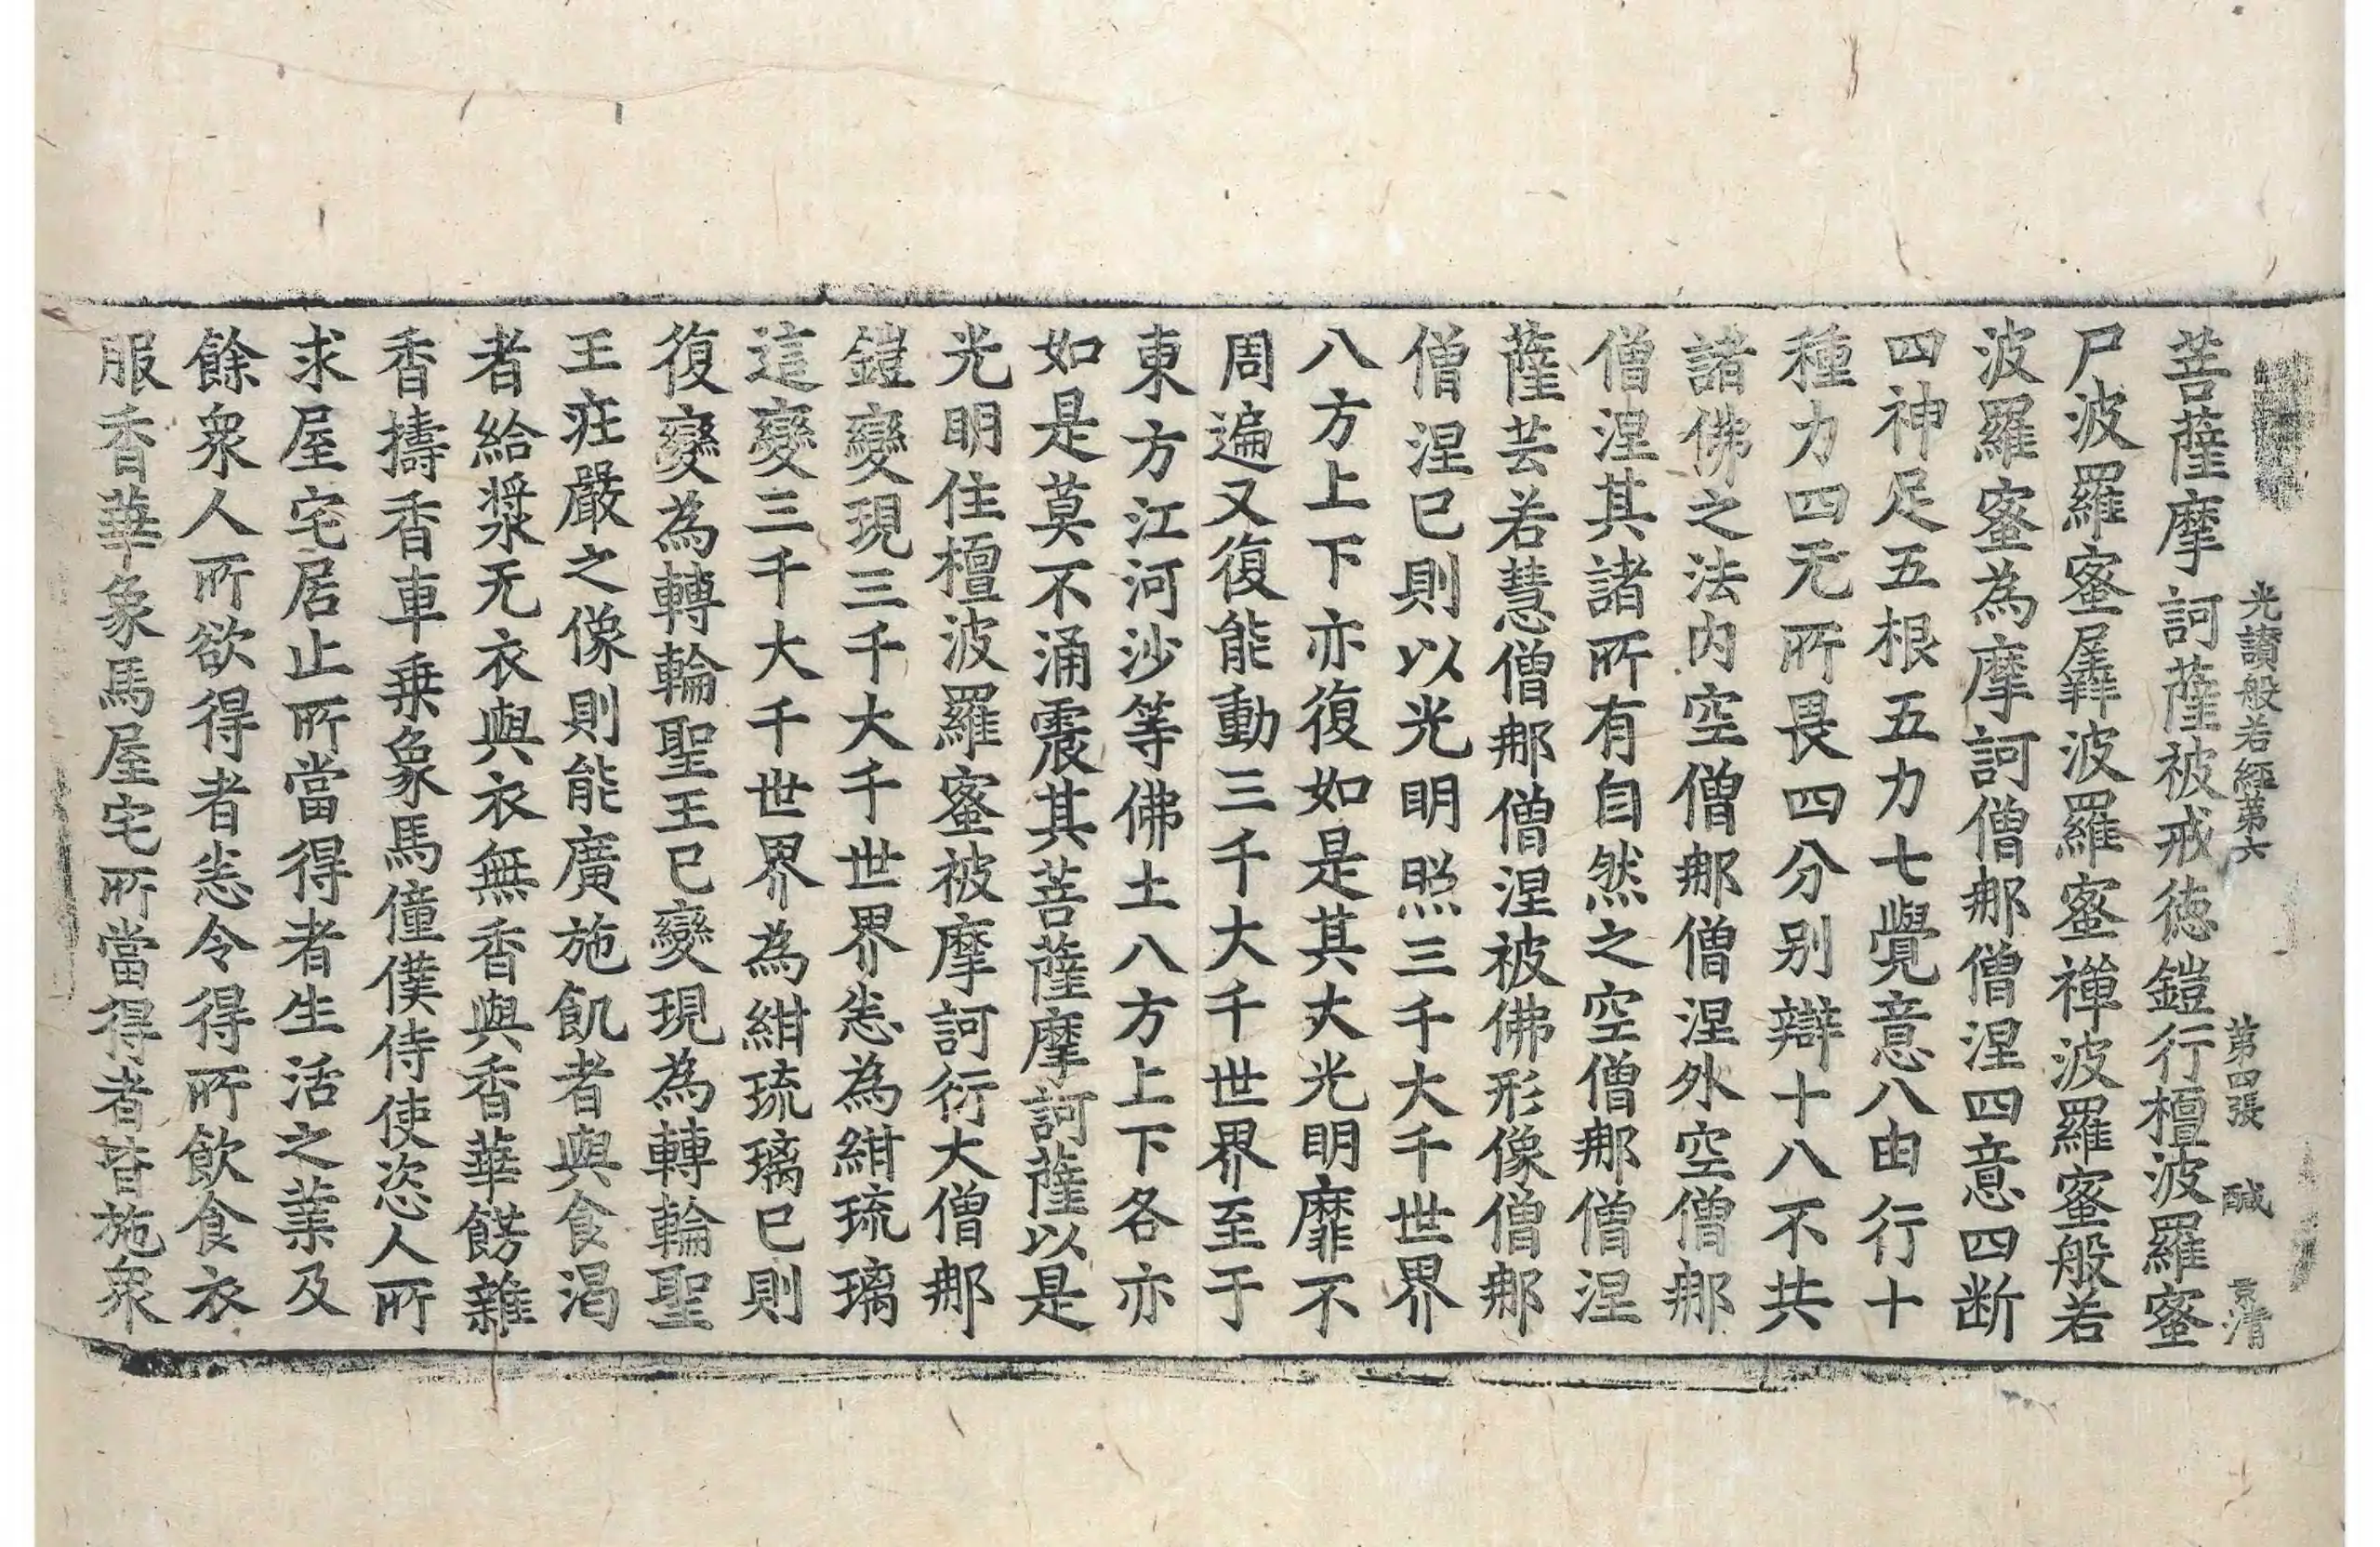 光讃般若經第六 第四張 醎 景清
菩薩摩訶薩被戒徳鎧行檀波羅蜜
尸波羅蜜羼波羅蜜禪波羅蜜般若
波羅蜜為摩訶僧那僧涅四意四断
四神足五根五力七覺意八由行十
種力四无所畏四分别辯十八不共
諸佛之法内空僧那僧涅外空僧那
僧涅其諸所有自然之空僧那僧涅
薩芸若慧僧那僧涅被佛形像僧那
僧涅已則以光明照三千大千世界
八方上下亦復如是其大光明靡不
周遍又復能動三千大千世界至于
東方江河沙等佛土八方上下各亦
如是莫不涌震其菩薩摩訶薩以是
光明住檀波羅蜜被摩訶衍大僧那
鎧變現三千大千世界悉為紺琉璃
這變三千大千世界為紺琉璃已則
復變為轉輪聖王已變現為轉輪聖
王莊嚴之像則能廣施飢者與食渴
者給漿无衣與衣無香與香華餝雜
香擣香車乗象馬僮僕侍使恣人所
求屋宅居止所當得者生活之業及
餘衆人所欲得者悉令得所飲食衣
服香華象馬屋宅所當得者皆施衆